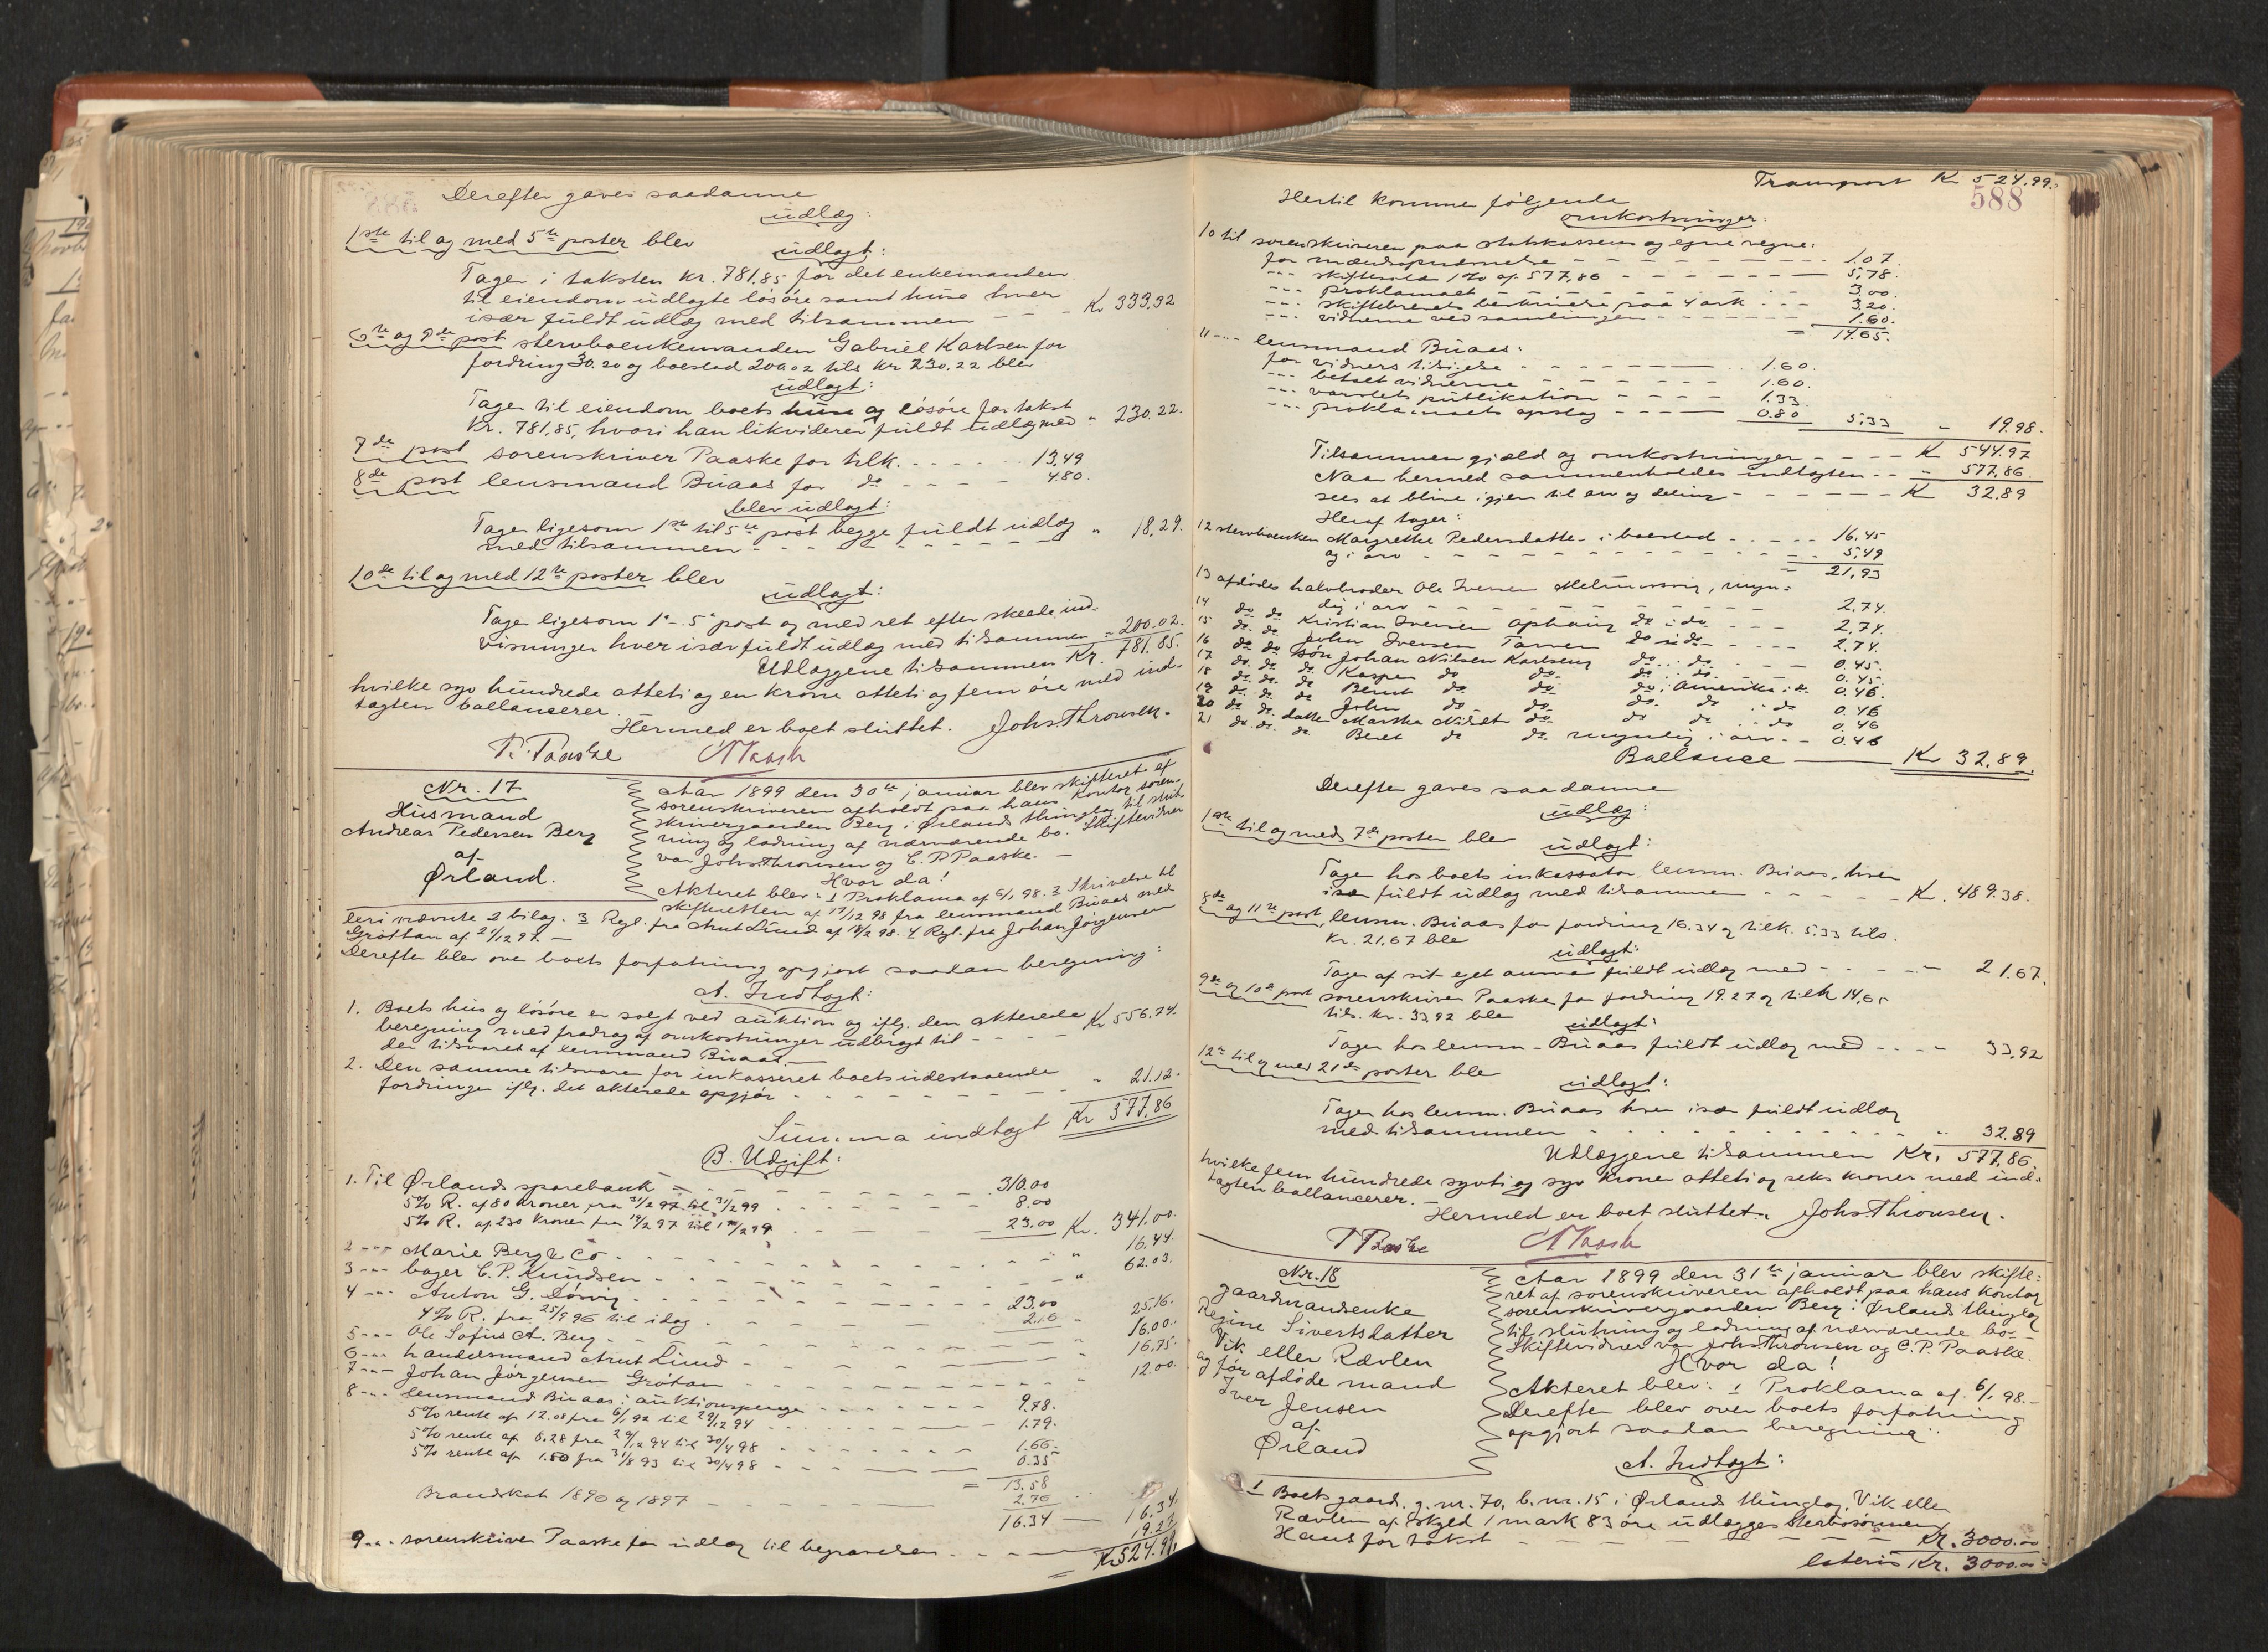 Derefter gaves saadanne
udlæg:
1ste til og med 5te poster blev
udlagt:
Tager i taksten kr. 781,85 for det enkemanden
til eiendom udlagte løsøre samt huse hver
især fuldt udlæg med tilsammen - - - Kr 333.32
6te og 9de post stervboenkemanden Gabriel Karlsen for
fordring 30.20 og boeslod 200.02 tils kr 230.22 blev
udlagt:
Tager til eiendom boets huse og løsøre for takst
Kr. 781,85, hvori han likviderer fuldt udlæg med " 230.22.
7de post sorenskriver Paaske for tilk. - - - - - 13,49
8de post lensmand Buaas for do - - - - 4.80.
blev udlagt:
Tager ligesom 1ste til 5te post begge fuldt udlæg
med tilsammen - - - - - - - - " 18,29.
10de til og med 12te poster blev
udlagt:
Tager ligesom 1ste - 5te post og med ret efter skeede ind-
visninger hver især fuldt udlæg med tilsammen " 200.02.
Udlæggene tilsammen Kr. 781.85.
hvilke syv hundrede otteti og en krone otteti og fem øre med ind-
tægten ballancerer.
Hermed er boet sluttet. Johs. Thronsen.
P. Paaske
Nr. 17
Husmand
Andreas Pedersen Berg
af
Ørland.
Aar 1899 den 30te januar blev skifteret af
sorenskriveren afholdt paa hans kontor soren-
skrivergaarden Berg i Ørlands thinglag til slut-
ning og ladning af nærværende bo. Skiftevidner
var Johs. Thronsen og C. P. Paaske. -
Hvor da!
Akteret blev: 1 Proklama af 6/1 98. 2 Skrivelse til
skifteretten af 17/12 98 fra lensmand Buaas med
deri nævnte 2 bilag. 3 Regl. fra Arnt Lund af 18/2 98. 4 Regl. fra Johan Jørgensen
Grøttan af 21/12 97. -
Derefter blev over boets forfatning opgjort saadan beregning:
A. Indtægt:
1. Boets hus og løsøre er solgt ved auktion og iflg. den akterede
beregning med fradrag af omkostninger udbragt til - - - Kr 556,74.
der tilsvaret af lensmand Buaas
2. Den samme tilsvarer for inkasseret boets udestaaende
fordringer iflg. det akterede opgjør - - - - - " 21.12.
Summa indtægt Kr 577,86
B. Udgift:
1. Til Ørlands sparebank - - - - 310.00
5% R. af 80 kroner fra 31/2 97 til 31/2 99 - - - 8.00
5% R. af 230 kroner fra 19/2 97 til 19/2 99 - - - 23.00 Kr. 341.00.
2 --- Marie Berg & Co - - - - " 16.44.
3 --- bager C. P. Knudsen - - - - " 62.03.
4 --- Anton G. Døsvig - - - - 23.00
4% R. fra 25/9 96 til idag - - - 2.16 " 25,16.
5 --- Ole Sofus A. Berg - - - - " 16.00.
6 --- handelsmand Arnt Lund - - - - " 16,75.
7 --- Johan Jørgensen Grøtan - - - - " 12.00.
8 --- lensmand Buaas: auktionspenge - - - 9.78.
5% rente af 12.08 fra 6/1 92 til 29/12 94 - - - 1.79.
5% rente af 8.28 fra 29/12 94 til 30/4 98 - - - 1.66.
5% rente af 1.50 fra 31/8 93 til 30/4 98 - - - 0.35
= 13.58
Brandskat 1896 og 1897 - - - - 2.76
16.34 — 16.34.
9 --- sorenskriver Paaske for udlæg til begravelsen - - - 19.27
Kr 524.99.
Transport Kr 524.99.
588
Hertil komme følgende
omkostninger:
10 til sorenskriveren paa statskassens og egne vegne:
for mændsopnævnelse - - - 1.07.
--- skiftesalær 1% af 577,86 - - - 5,78.
--- proklamaet - - - 3.00.
--- skiftebrevets beskrivelse paa 4 ark - - - 3.20.
--- vidnerne ved samlingen - - - 1.60.
= 14.65.
11 --- lensmand Buaas:
for vidners tilsigelse - - - 1.60.
--- betalt vidnerne - - - 1.60.
--- varslets publikation - - - 1.33.
--- proklamaets opslag - - - 0.80 5,33 " 19.98.
Tilsammen gjæld og omkostninger - - - Kr 544.97
Naar hermed sammenholdes indtægten - - " 577,86.
sees at blive igjen til arv og deling - - - Kr 32.89
Heraf tager:
12 stervboenken Margrethe Pedersdatter i boeslod - - - 16.45
og i arv - - - 5.49
" 21,93
13 afdødes halvbroder Ole Iversen, myn-
dig i arv - - - 2,74.
14 do do Kristian Iversen Ophaug do i do - - - 2,74.
15 do. do. John Iversen Tarven do i do - - - 2,74.
16 do do søn Johan Nilsen Karlseng do i do - - - 0.45.
17 do. do. do Kasper do do. do i do - - - 0.45.
18 do. do. do Bernt do do do i Amerika i do 0.46.
19 do. do. do John do do do. do i do 0.46
20 do do. datter Martha Nilsdt do do do i do 0.46
21 do. do. do Beret do do myndig i arv - - 0.46
Ballance — Kr 32,89
Derefter gaves saadanne
udlæg:
1ste til og med 7de poster blev
udlagt:
Tager hos boets inkassator lensm. Buaas, hver
især fuldt udlæg med tilsammen - - - Kr. 489.38.
8de og 11te post lensm. Buaas for fordring 16.34 og tilk. 5.33 tils.
kr. 21.67 blev
udlagt:
Tager af sit eget ansvar fuldt udlæg med - - - " 21.67.
9de og 10de post sorenskriver Paaske for fordring 19.27 og tilk 14.65
tils. kr. 33.92 blev
udlagt:
Tager hos lensm. Buaas fuldt udlæg med - - - " 33,92
12te til og med 21de poster blev
udlagt:
Tager hos lensm. Buaas hver især fuldt udlæg
med tilsammen - - - " 32.89
Udlæggene tilsammen Kr. 577,86.
hvilke fem hundrede sytti og syv kroner otteti og seks kroner med ind-
tægten ballancerer. -
Hermed er boet sluttet. Johs. Thronsen.
P Paaske
Nr. 18
gaardmandsenke
Regine Sivertsdatter
Vik eller Rævlen
og før afdøde mand
Iver Jensen
af
Ørland
Aar 1899 den 31te januar blev skifte-
ret af sorenskriveren afholdt paa hans kontor
sorenskrivergaarden Berg i Ørlands thinglag
til slutning og ladning af nærværende bo. -
Skiftevidner var Johs. Thronsen og C. P. Paaske.
Hvor da!
Akteret blev: 1 Proklama af 6/1 98. -
Derefter blev over boets forfatning
opgjort saadan beregning:
A. Indtægt:
1 Boets gaard, g. nr. 70, b. nr. 15 i Ørlands thinglag, Vik eller
Rævlen af skyld 1 mark 83 øre udlægges stervbosønnen
Hans for takst - - - Kr. 3000.00
lateris Kr. 3000.00